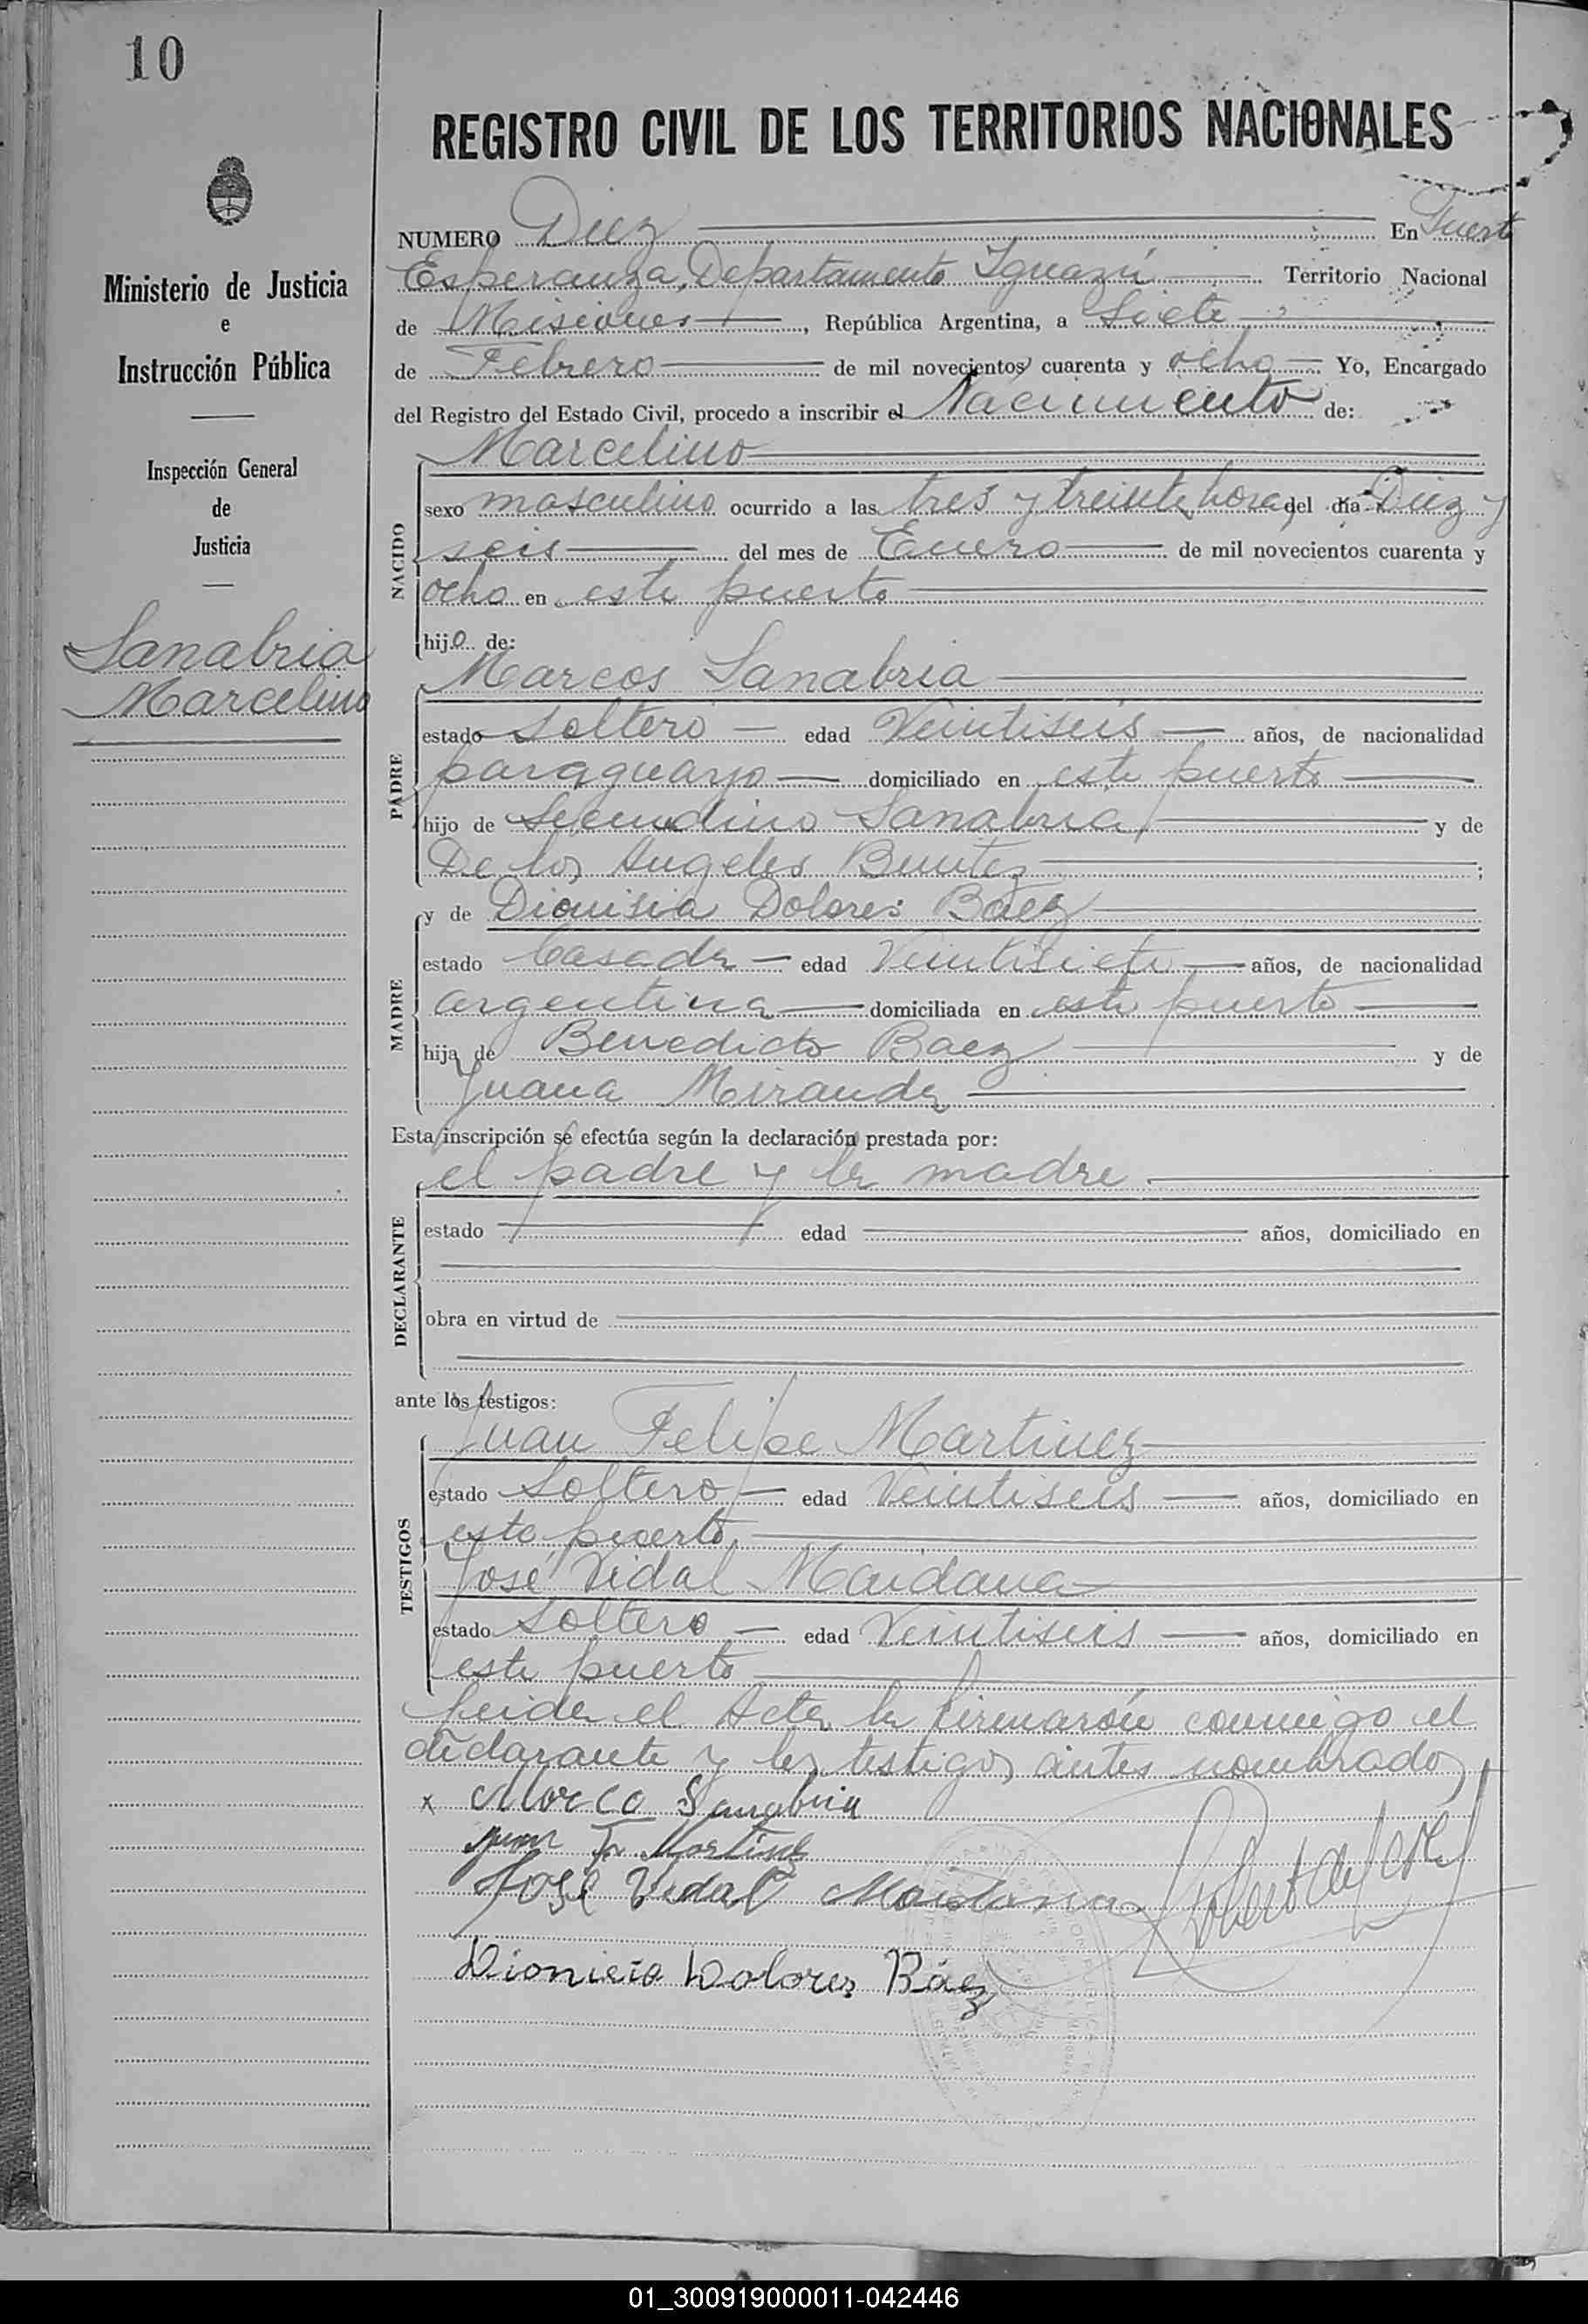 10
Ministerio de Justicia
e
Instrucción Pública
Inspección General
de
Justicia
Sanabria
Marcelino
REGISTRO CIVIL DE LOS TERRITORIOS NACIONALES
NUMERO Diez En Puerto
Esperanza, Departamento Iguazú Territorio Nacional
de Misiones, República Argentina, a Siete
de Febrero de mil novecientos cuarenta y ocho Yo, Encargado
del Registro del Estado Civil, procedo a inscribir el Nacimiento de:
NACIDO
Marcelino
sexo masculino ocurrido a las tres y treinta horas del día Diez y
seis del mes de Enero de mil novecientos cuarenta y
ocho en este puerto
hijo de:
PADRE
Marcos Sanabria
estado Soltero edad Veintiseis años, de nacionalidad
paraguayo domiciliado en este puerto
hijo de Secundino Sanabria y de
De los Angeles Benitez;
MADRE
y de Dionisia Dolores Baez
estado Casada edad Veintisiete años, de nacionalidad
argentina domiciliada en este puerto
hija de Benedicto Baez y de
Juana Miranda
Esta inscripción se efectúa según la declaración prestada por:
DECLARANTE
el padre y la madre
estado edad años, domiciliado en
obra en virtud de
ante los testigos:
TESTIGOS
Juan Felipe Martinez
estado Soltero edad Veintiseis años, domiciliado en
este puerto
José Vidal Maidana
estado Soltero edad Veintiseis años, domiciliado en
este puerto
Leida el Acta la firmarón conmigo el
declarante y los testigos antes nombrados
x Marco Sanabria
Juan F. Martinez
José Vidal Maidana
Dionicia Dolores Báez
01_300919000011-042446